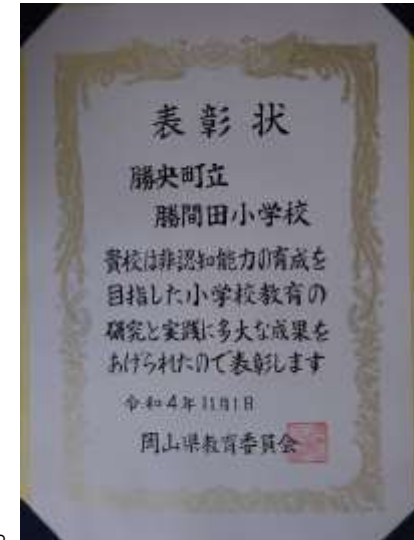 表彰状
勝央町立
勝間田小学校
貴校は非認知能力の育成を
目指した小学校教育の
研究と実践に多大な成果を
あげられたので表彰します
令和4年11月1日
岡山県教育委員会